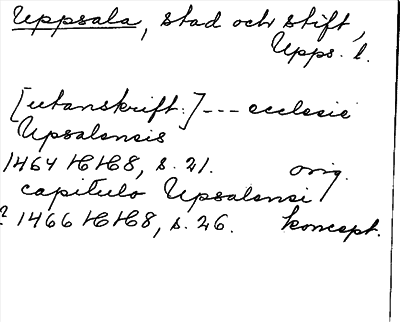 Uppsala, stad och stift,
Upps. l.
[utanskrift:] --- ecclesie
Upsalensis
1464 HH8, s. 21. orig.
capitulo Upsalensi
? 1466 HH8, s. 26. koncept.